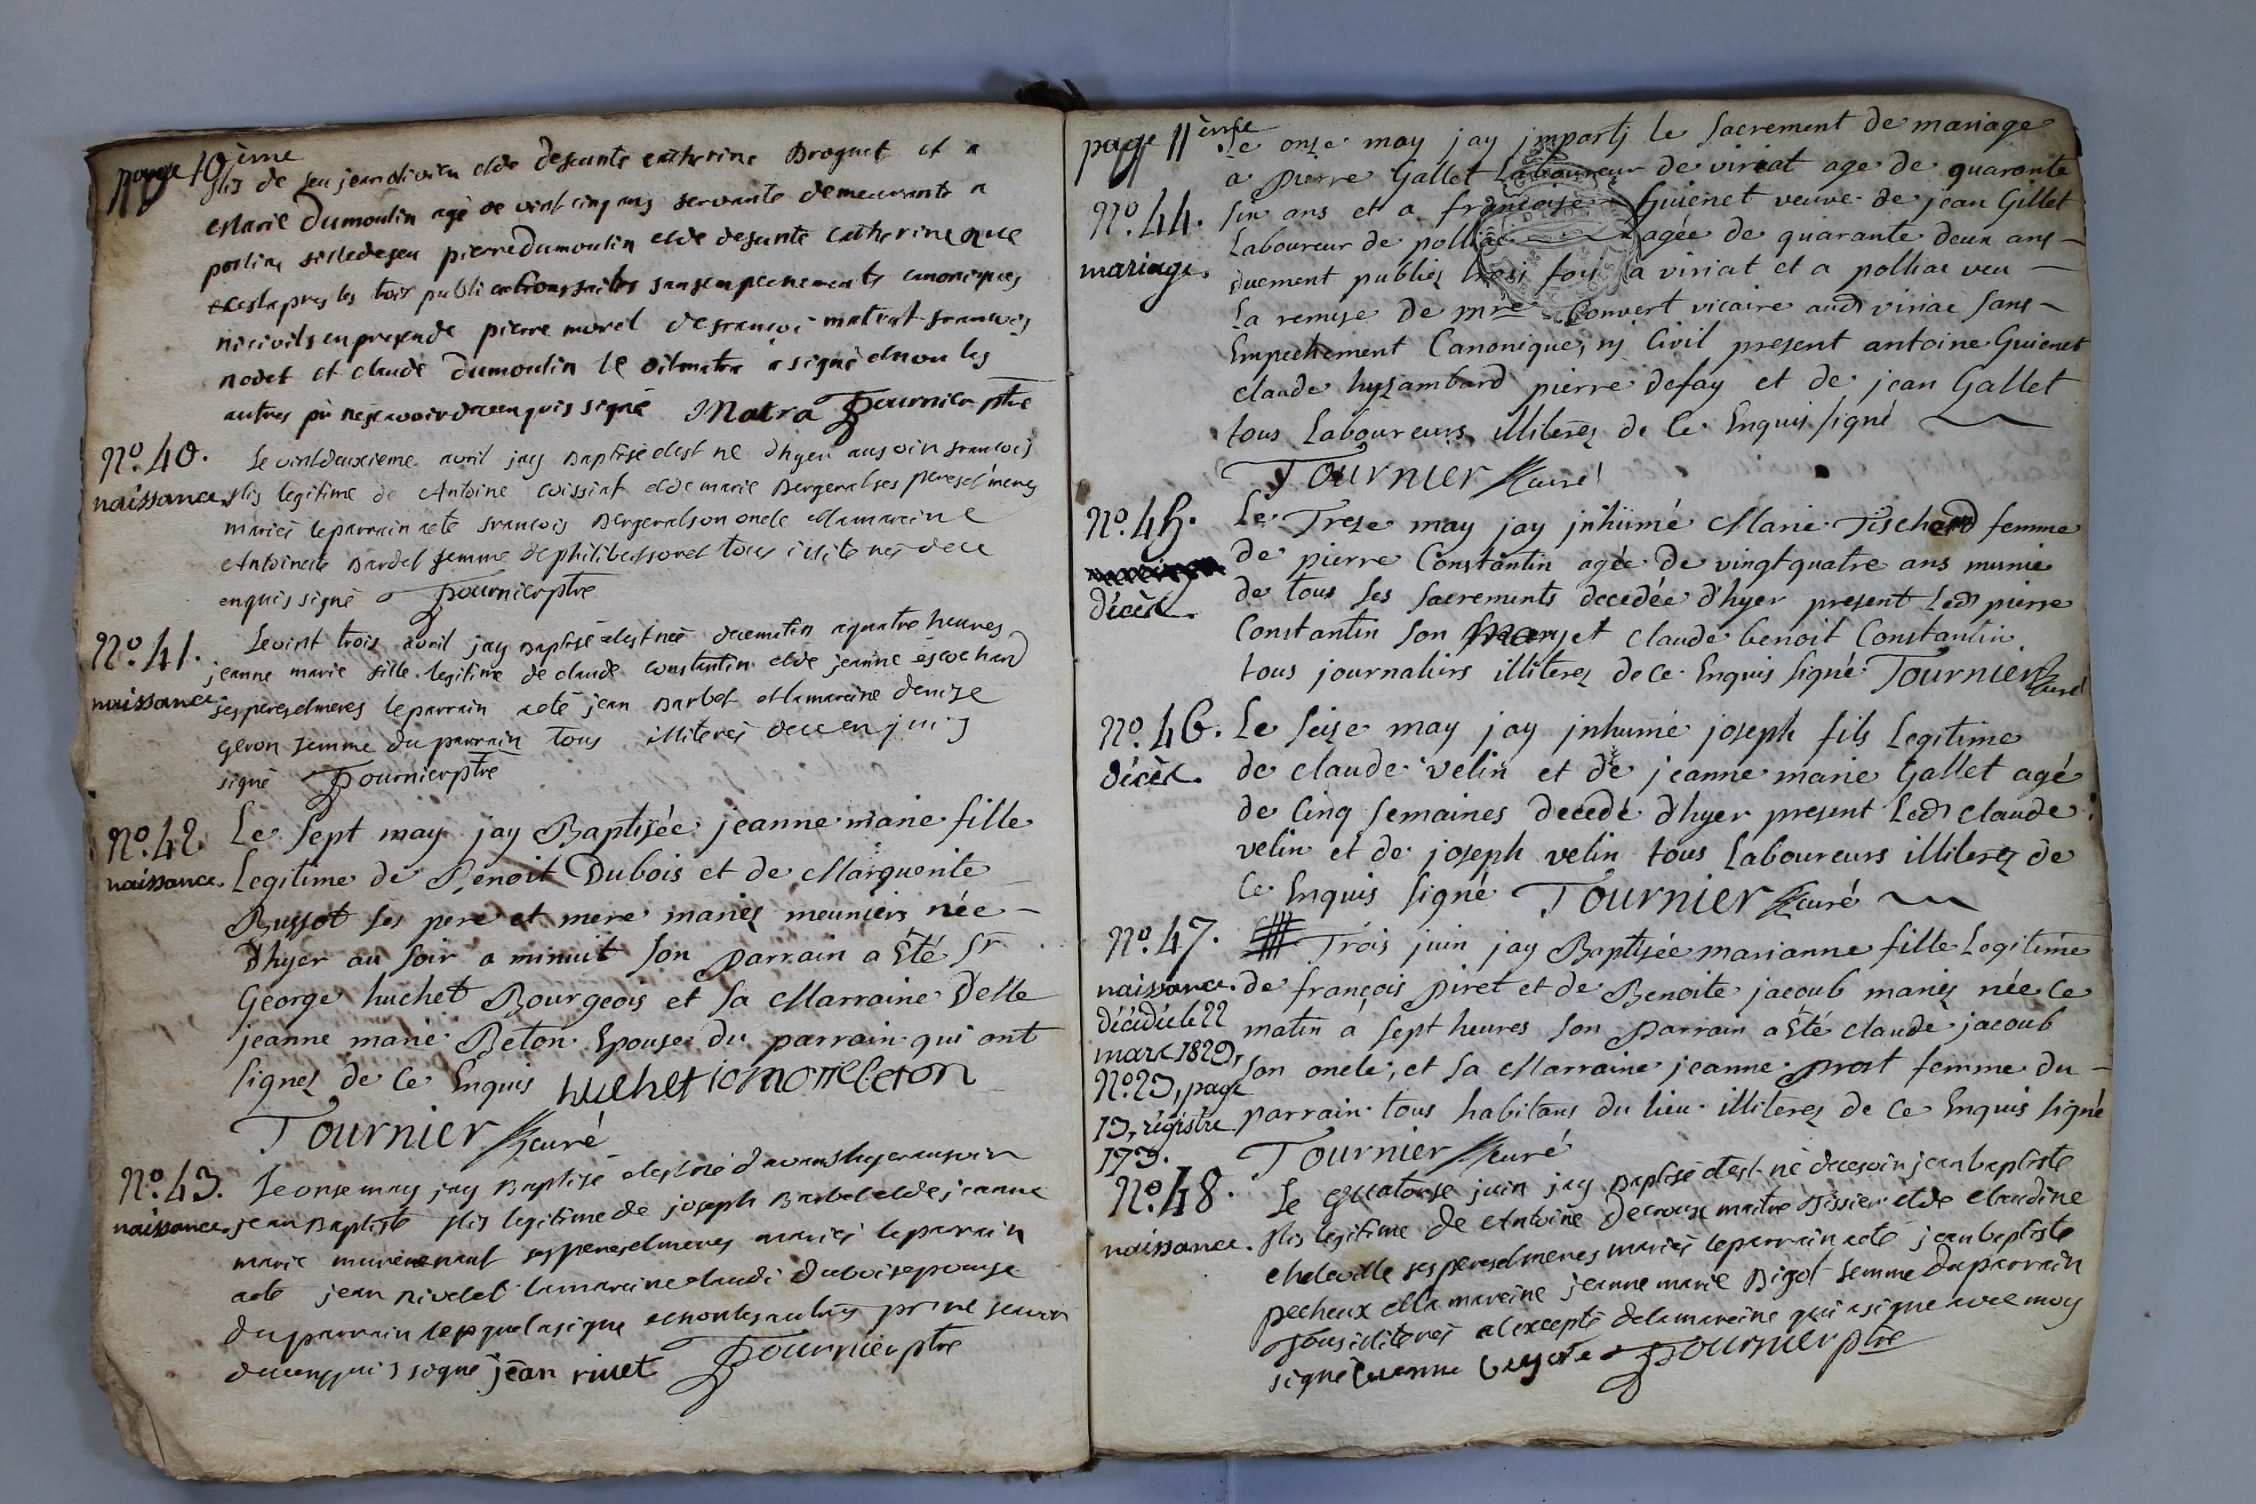 page 10ème
fils de feu jean divien et de defunte catherine Broguet et a
Marie Dumoulin agé de vint cinq ans servante demeurante a
fille de feu pierre dumoulin et de defunte Catherine
apres les trois publications faites sans empechements canoniques
ni civils en presende pierre morel de francois matrat francois
nodet et claude dumoulin le dit matra a signé et non les
autres pr ne scavoir de ce enquis signé Matra Tournier ptre
N°. 40.
naissance.
Le vint deuxieme avril jay Baptisé et est né d'hyer au soir francois
fils legitime de Antoine coissiat et de marie Bergeral ses peres et meres
mariés le parrain a eté francois Bergeral son oncle et la maraine
Antoinete Bardel femme de philibert sorel tous illiterés de ce
enquis signé Tournier ptre
N°. 41.
naissance
Le vint trois avril jay Baptisé et est néé de ce matin a quatre heures
jeanne marie fille legitime de claude constantin et de jeanne escochard
ses peres et meres le parrain a eté jean Barbet et la maraine denize
geron femme du parrain tous illiterés de ce enquis
signé Tournier ptre
N°. 42.
naissance.
Le Sept may jay Baptisée jeanne marie fille
Legitime de Benoit Dubois et de Marguerite
Bussot ses pere et mere mariez meuniers née
d'hyer au soir a minuit son parrain a Eté Sr
George huchet Bourgeois et sa Marraine Delle
jeanne marie Beton Epouse du parrain qui ont
signez de ce Enquis huchet
Tournier curé
N°. 43.
naissance.
Le onse may jay Baptisé et est né davanthyer au soir
jean Baptiste fils legitime de joseph Barbet et de jeanne
marie ses peres et meres mariés le parrain
a eté jean nivelet la maraine claudi dubois epouse
du parrain lequel a signe et non les autres pr ne scavoir
de ce enquis signé jean rivet Tournier ptre
page 11ème
N°. 44.
mariage.
Le onze may jay imparti le Sacrement de mariage
a pierre Gallet Laboureur de viriat age de quarante
six ans et a françoise Guienet veuve de jean Gillet
Laboureur de polliac agée de quarante deux ans
duement publiez trois fois a viriat et a polliac veu
La remise de mre Convert vicaire aud viriac Sans
Empechement Canonique, nj Civil present antoine Guienet
claude hyzambard pierre defay et de jean Gallet
tous Laboureurs illiterez de Ce Enquis signé
Tournier curé
N°. 45.
décès.
Le Treze may jay inhumé Marie Tischard femme
de pierre Constantin agée de vingt quatre ans munie
de tous ses Sacrements decedée d'hyer present Led pierre
Constantin son mary et claude benoit Constantin
tous journaliers illiterez de ce Enquis signé Tournier curé
N°. 46.
décès.
Le Seize may jay inhumé joseph fils Legitime
de claude velin et de jeanne marie Gallet agé
de Cinq Semaines decedé d'hyer present Led claude
velin et de joseph velin tous Laboureurs illiterez de
Ce Enquis signé Tournier curé
N°. 47.
naissance.
décédée le 22
mars 1829,
N°. 23, page
13, régistre
173.
Trois juin jay Baptisée marianne fille Legitime
de françois piret et de Benoite jacoub mariez née ce
matin à sept heures son parrain a Eté claude jacoub
son oncle, et sa Marraine jeanne prost femme du
parrain tous habitans du lieu illiterez de Ce Enquis signé
Tournier curé
N°. 48.
naissance.
Le quatorse juin jay Baptisé et est né de ce soir jean baptiste
fils legitime de Antoine Decroux maitre tissier et de claudine
ses peres et meres mariés le parrain a eté jean baptiste
pecheux et la maraine jeanne marie Bigot femme du parrain
Tous illiterés a l excepté de la maraine qui a signe avec moy
signé Tournier ptre